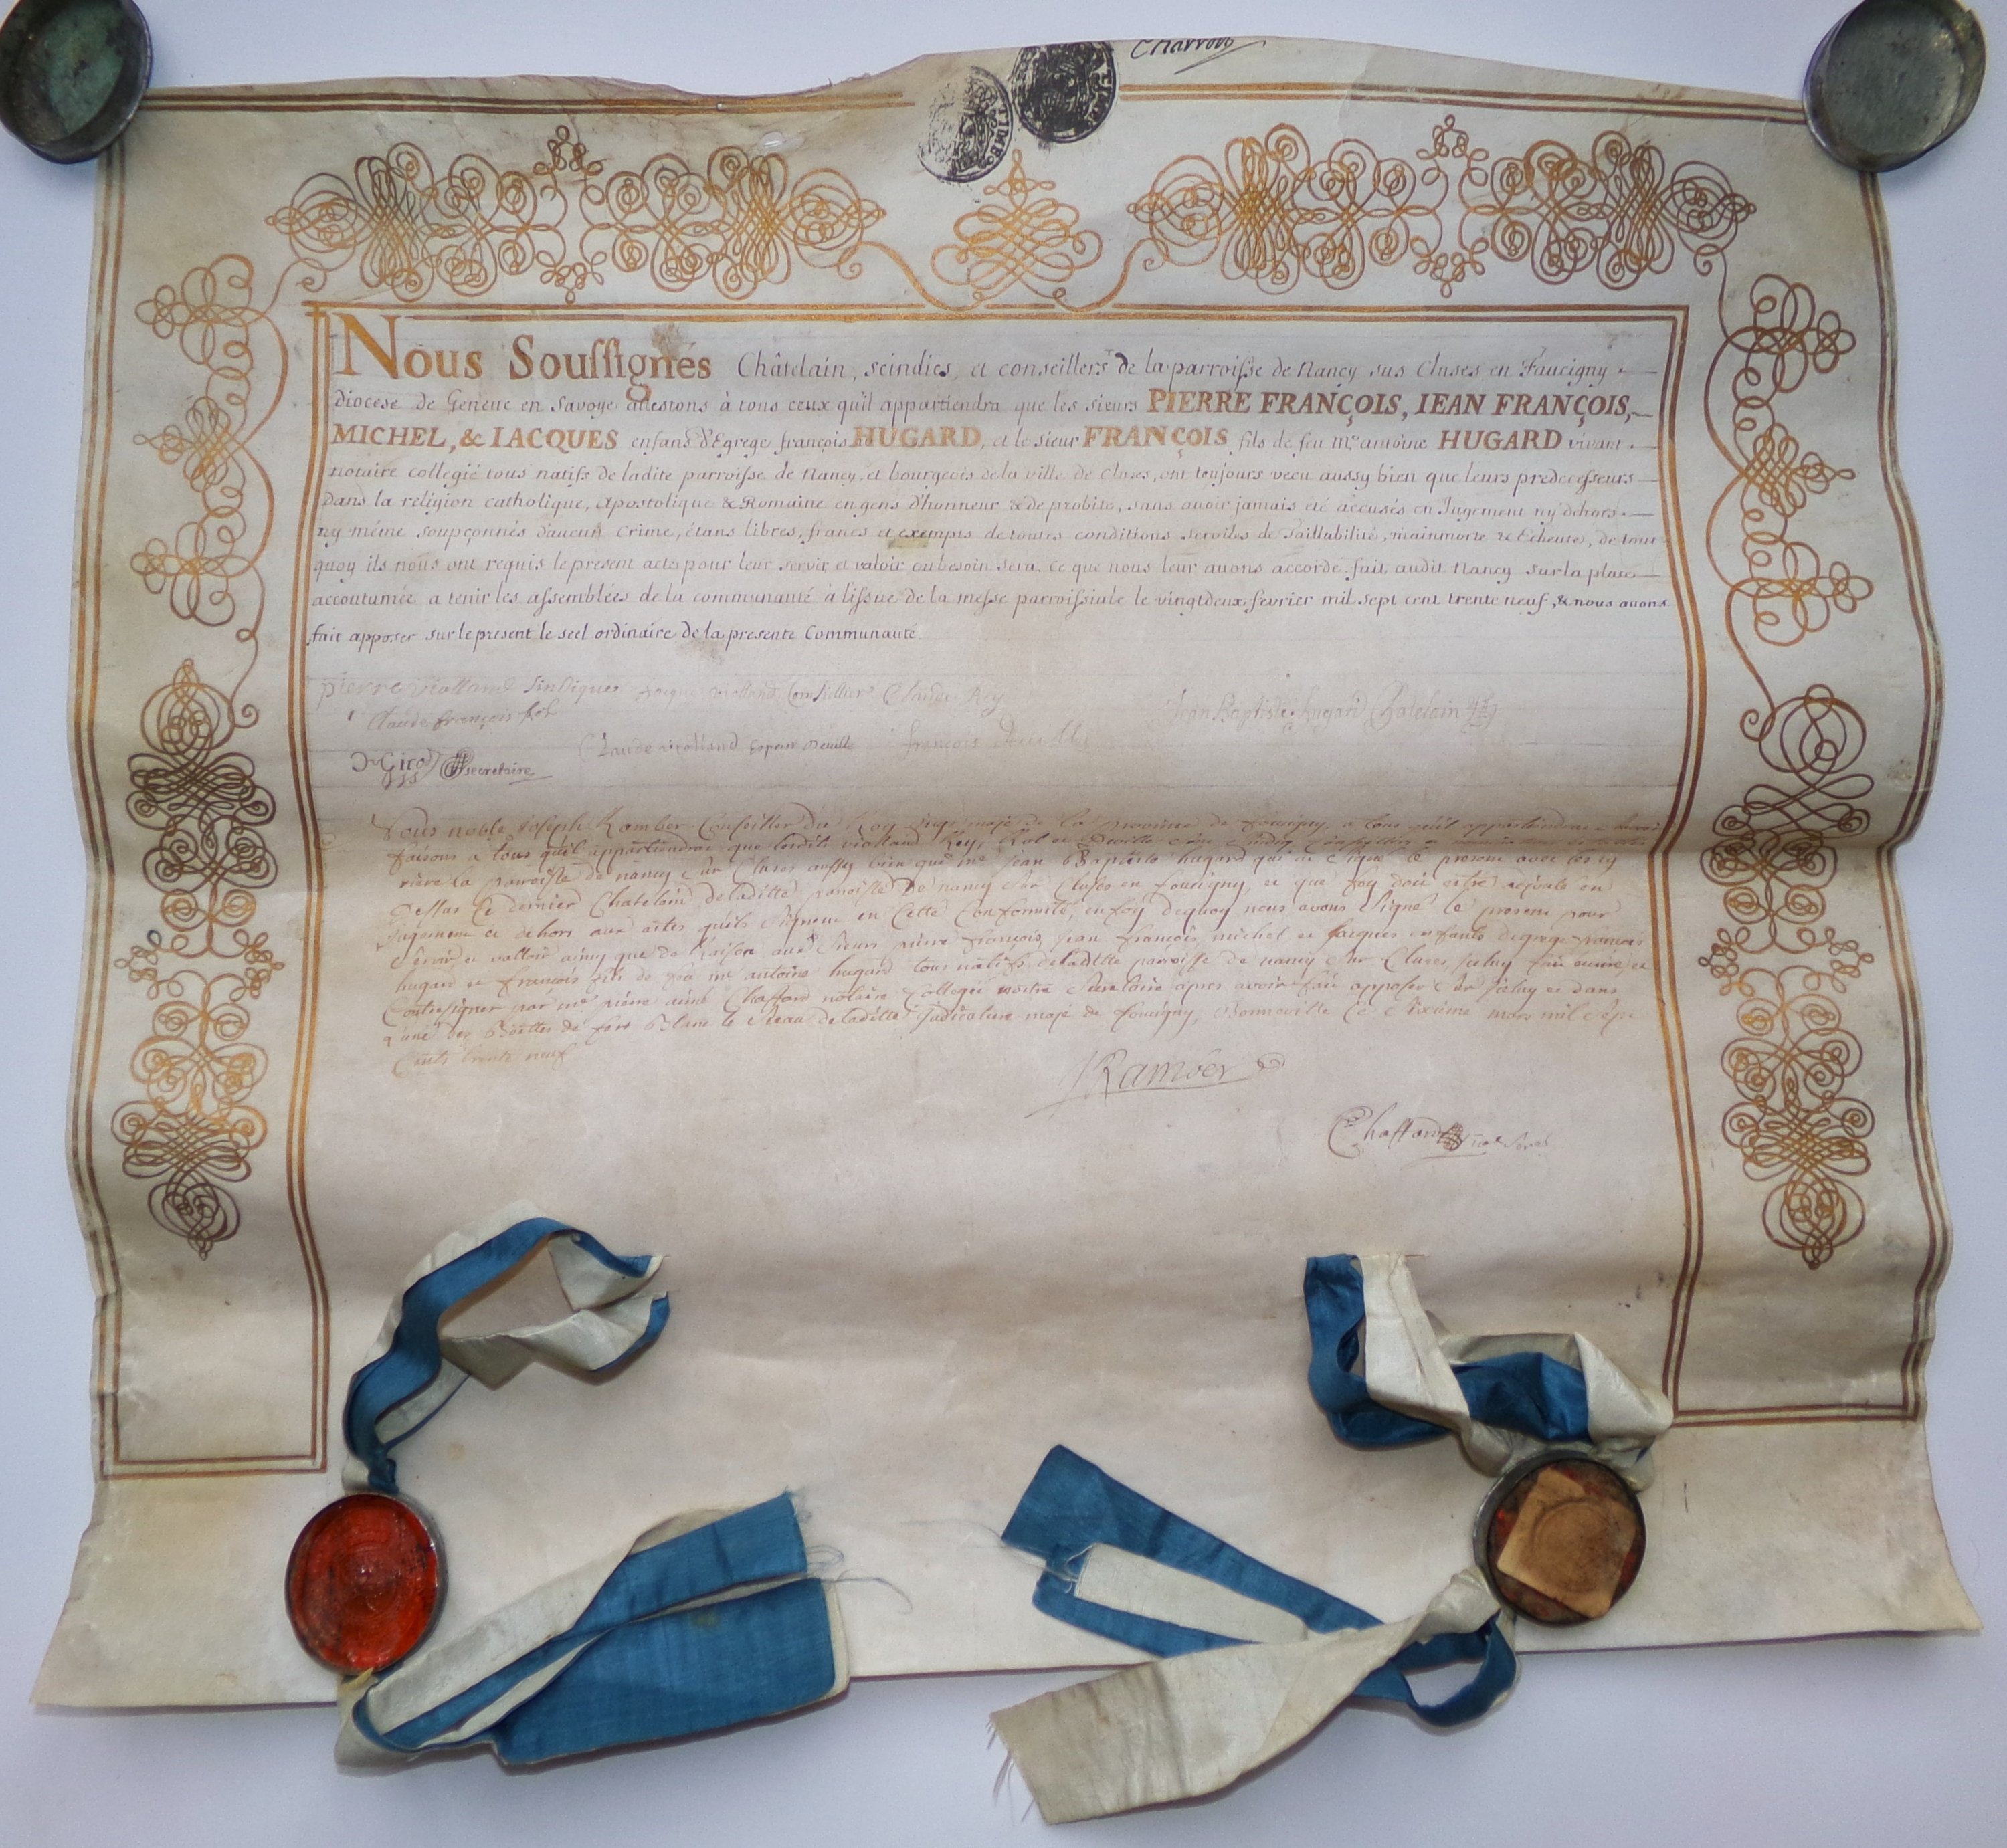 Charrout
TIMBRO
Nous Soussignés Châtelain, scindics, et conseillers de la parroisse de Nancy sus Cluses en Faucigny
diocese de Geneve en Savoye attestons à tous ceux qu'il appartiendra que les sieurs PIERRE FRANÇOIS, IEAN FRANÇOIS,
MICHEL, & IACQUES enfans d'Egrege françois HUGARD, et le sieur FRANÇOIS fils de feu me antoine HUGARD vivant
notaire collegié tous natifs de ladite parroisse de Nancy, et bourgeois de la ville de Cluses, ont toujours vecu aussy bien que leurs predecesseurs
Dans la religion catholique, Apostolique & Romaine en gens d'honneur & de probité, sans avoir jamais été accusés en Jugement ny dehors
ny même soupçonnés d'aucun Crime, étans libres, francs et exempts de toutes conditions serviles de Taillabilité, mainmorte & Echeutes, de tout
quoy ils nous ont requis le present acte pour leur servir et valoir ou besoin sera. Ce que nous leur avons accordé. fait audit Nancy sur la place
accoutumée a tenir les assemblées de la communauté à l'issue de la messe parroissiale le vingtdeux fevrier mil sept cent trente neuf, & nous avons
fait apposer sur le present le seel ordinaire de la presente Communauté
pierre violland Sindiques Jacque violland Conseillier Claude Rey
Jean Baptiste hugard Chatelain
Claude françois
Claude violland françois
Girod secretaire
Nous noble Joseph Rambert Conseiller du Roy Juge maje de la Province de Foucigny a tous qu'il appartiendra
faisons a tous qu'il appartiendra que lesdits violland Rey,
rière la parroisse de nancy sur Cluses aussy bien que me Jean Baptiste hugard qui a signé le present avec les cy
Dessus le dernier Chatelain de laditte parroisse de nancy sur Cluses en foucigny, et que foy doit estre adjoutée en
Jugement et dehors aux actes qu'ils signent en Cette Conformité, en foy dequoy nous avons signé le present pour
servir et valloir ainsy que de Raison aux sieurs pierre françois, Jean françois, michel et Jacques enfants d'egrege françois
hugard et françois fils de feu me antoine hugard tous natifs de laditte parroisse de nancy sur Cluses
Contresigner par me pierre aimé Chaffard notaire Collegié nostre secretaire apres avoir fait apposer sur iceluy et dans
l'une des Boettes de fert Blanc le sceau de laditte Judicature maje de foucigny, Bonneville ce sixieme mars mil sept
Cents trente neuf
Rambert
Chaffard